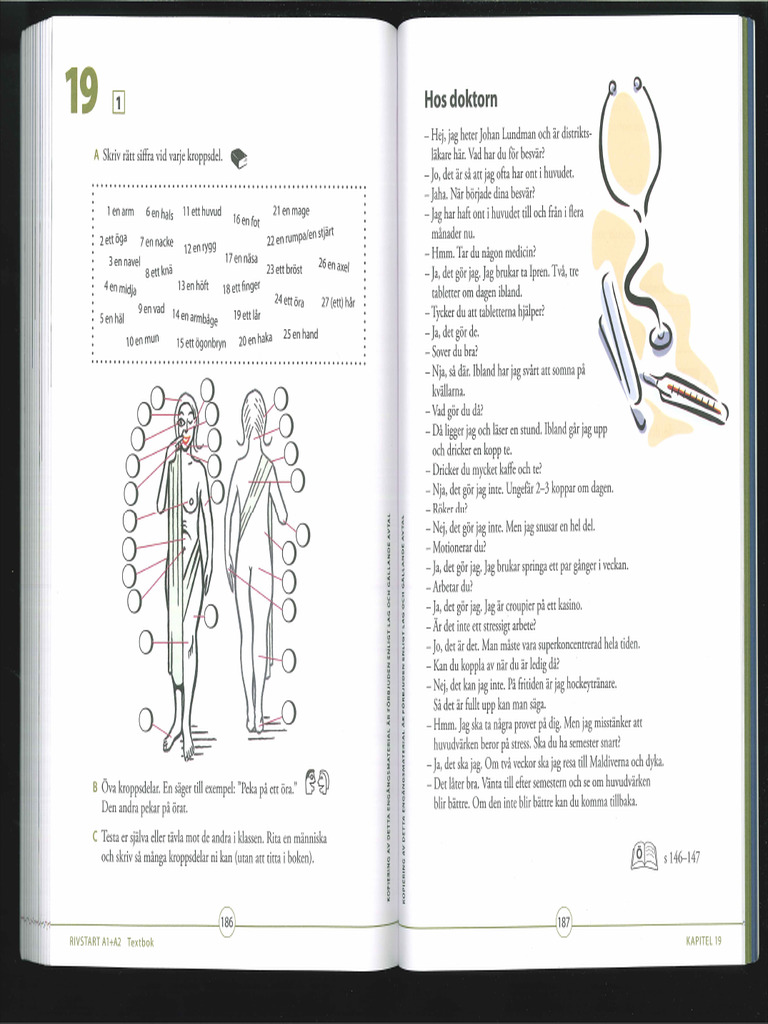 19
1
A Skriv rätt siffra vid varje kroppsdel.
1 en arm 6 en hals 11 ett huvud 16 en fot 21 en mage
2 ett öga 7 en nacke 12 en rygg 22 en rumpa/en stjärt
3 en navel 8 ett knä 17 en näsa 23 ett bröst 26 en axel
4 en midja 13 en höft 18 ett finger
5 en häl 9 en vad 14 en armbåge 19 ett lår 24 ett öra 27 (ett) hår
10 en mun 15 ett ögonbryn 20 en haka 25 en hand
B Öva kroppsdelar. En säger till exempel: "Peka på ett öra."
Den andra pekar på örat.
C Testa er själva eller tävla mot de andra i klassen. Rita en människa
och skriv så många kroppsdelar ni kan (utan att titta i boken).
186
RIVSTART A1+A2 Textbok
KOPIERING AV DETTA ENGÅNGSMATERIAL ÄR FÖRBJUDEN ENLIGT LAG OCH GÄLLANDE AVTAL
KOPIERING AV DETTA ENGÅNGSMATERIAL ÄR FÖRBJUDEN ENLIGT LAG OCH GÄLLANDE AVTAL
Hos doktorn
– Hej, jag heter Johan Lundman och är distrikts-
läkare här. Vad har du för besvär?
– Jo, det är så att jag ofta har ont i huvudet.
– Jaha. När började dina besvär?
– Jag har haft ont i huvudet till och från i flera
månader nu.
– Hmm. Tar du någon medicin?
– Ja, det gör jag. Jag brukar ta Ipren. Två, tre
tabletter om dagen ibland.
– Tycker du att tabletterna hjälper?
– Ja, det gör de.
– Sover du bra?
– Nja, så där. Ibland har jag svårt att somna på
kvällarna.
– Vad gör du då?
– Då ligger jag och läser en stund. Ibland går jag upp
och dricker en kopp te.
– Dricker du mycket kaffe och te?
– Nja, det gör jag inte. Ungefär 2–3 koppar om dagen.
– Röker du?
– Nej, det gör jag inte. Men jag snusar en hel del.
– Motionerar du?
– Ja, det gör jag. Jag brukar springa ett par gånger i veckan.
– Arbetar du?
– Ja, det gör jag. Jag är croupier på ett kasino.
– Är det inte ett stressigt arbete?
– Jo, det är det. Man måste vara superkoncentrerad hela tiden.
– Kan du koppla av när du är ledig då?
– Nej, det kan jag inte. På fritiden är jag hockeytränare.
Så det är fullt upp kan man säga.
– Hmm. Jag ska ta några prover på dig. Men jag misstänker att
huvudvärken beror på stress. Ska du ha semester snart?
– Ja, det ska jag. Om två veckor ska jag resa till Maldiverna och dyka.
– Det låter bra. Vänta till efter semestern och se om huvudvärken
blir bättre. Om den inte blir bättre kan du komma tillbaka.
Ö
s 146–147
187
KAPITEL 19